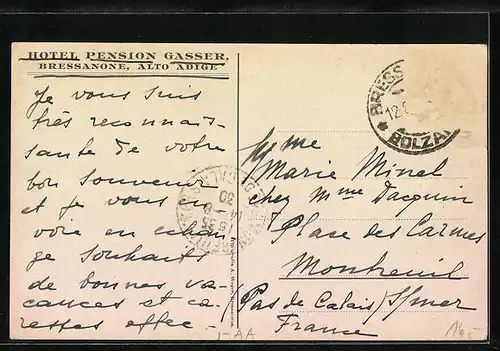 HOTEL PENSION GASSER,
BRESSANONE, ALTO ADIGE
Je vous suis
très reconnais-
sante de votre
bon souvenir
et je vous en
voie en échan
ge souhaits
de bonnes va-
cances et ca-
resses affec-
BRESS
12.
BOLZA
Marie Minel
chez Mme Dacquin
Place des Carmes
Montreuil
Pas de Calais S/mer
France
16.-
1-AA